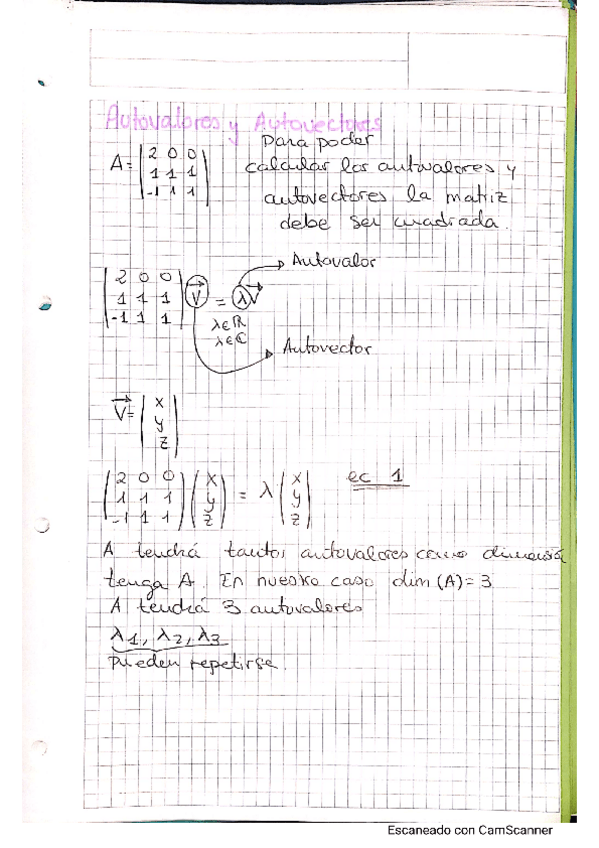 Autovalores y Autovectores
Para poder
calcular los autovalores y
autovectores la matriz
debe ser cuadrada.
A =
2 0 0
1 1 1
-1 1 1
Autovalor
2 0 0
1 1 1
-1 1 1
V = λV
λ∈ℝ
λ∈ℂ
Autovector
V =
x
y
z
2 0 0 x = λ x
1 1 1 y y
-1 1 1 z z
ec 1
A tendrá tantos autovalores como dimensión
tenga A. En nuestro caso dim (A) = 3
A tendrá 3 autovalores
λ1, λ2, λ3
Pueden repetirse.
Escaneado con CamScanner